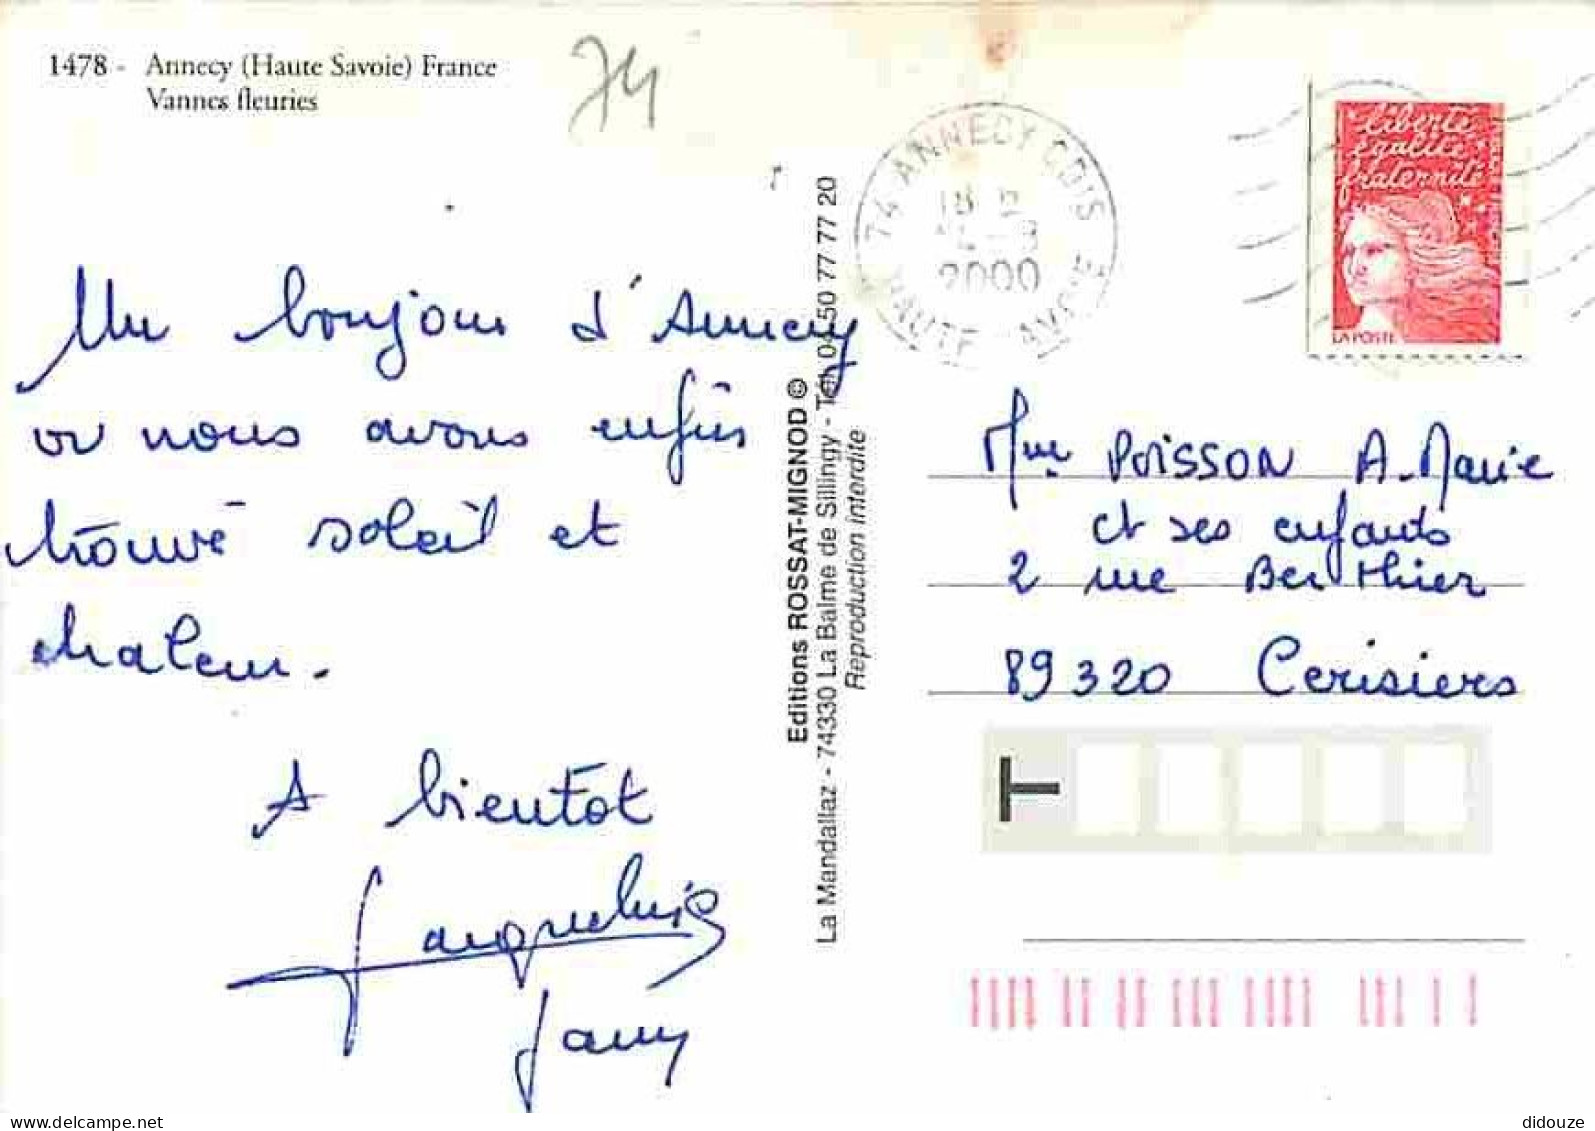 1478 - Annecy (Haute Savoie) France
Vannes fleuries
74
Un bonjour d'Annecy
où nous avons enfin
trouvé soleil et
chaleur.
A bientot
Jacqueline
Jamy
Editions ROSSAT-MIGNOD ©
La Mandallaz - 74330 La Balme de Sillingy - Tél. 04 50 77 77 20
Reproduction interdite
74 ANNECY CDIS
HAUTE SAVOIE
2000
liberté
égalité
fraternité
LA POSTE
Mme POISSON A-Marie
et ses enfants
2 rue Berthier
89320 Cerisiers
T
didouze @ delcampe.net